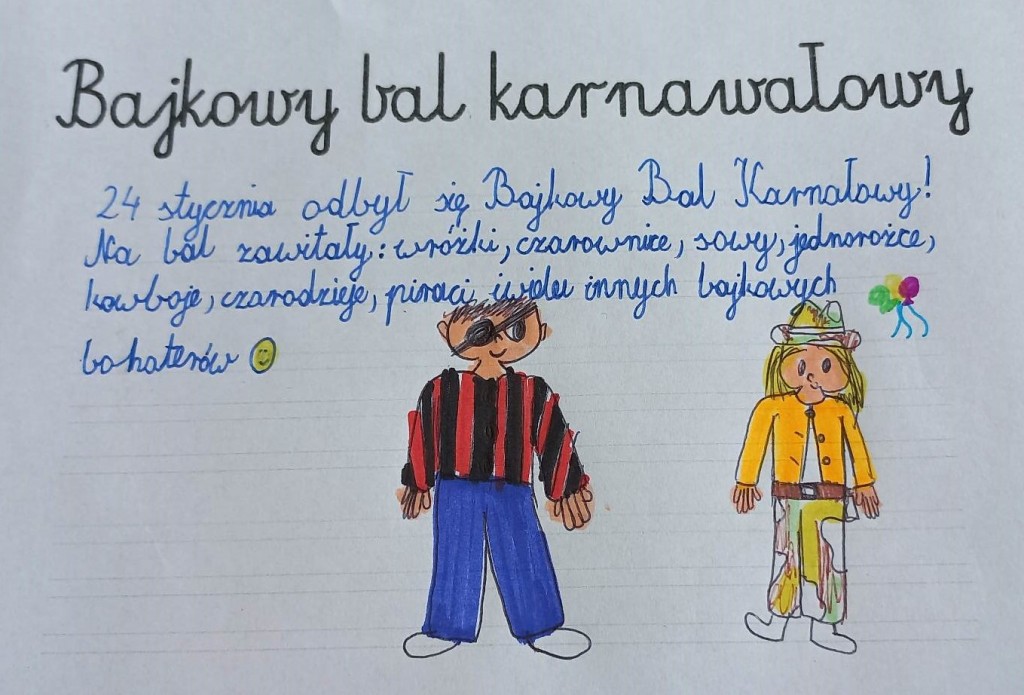 Bajkowy bal karnawałowy
24 stycznia odbył się Bajkowy Bal Karnałowy!
Na bal zawitały: wróżki, czarownice, sowy, jednorożce,
kowboje, czarodzieje, piraci i wielu innych bajkowych
bohaterów